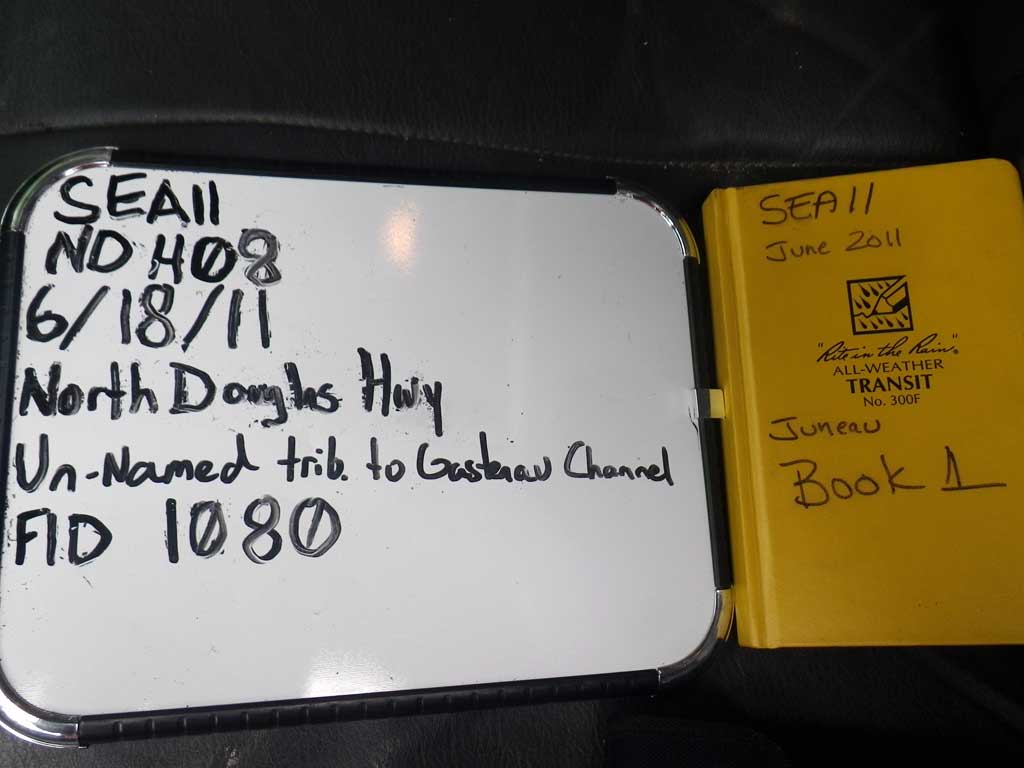 SEA11
ND H08
6/18/11
North Douglas Hwy
Un-Named trib. to Gastenau Channel
FID 1080
SEA11
June 2011
"Rite in the Rain"®
ALL-WEATHER
TRANSIT
No. 300F
Juneau
Book 1